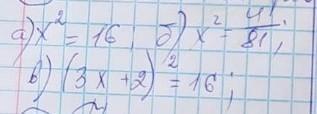 а) x² = 16; б) x² = 4/81;
в) (3x + 2)² = 16;